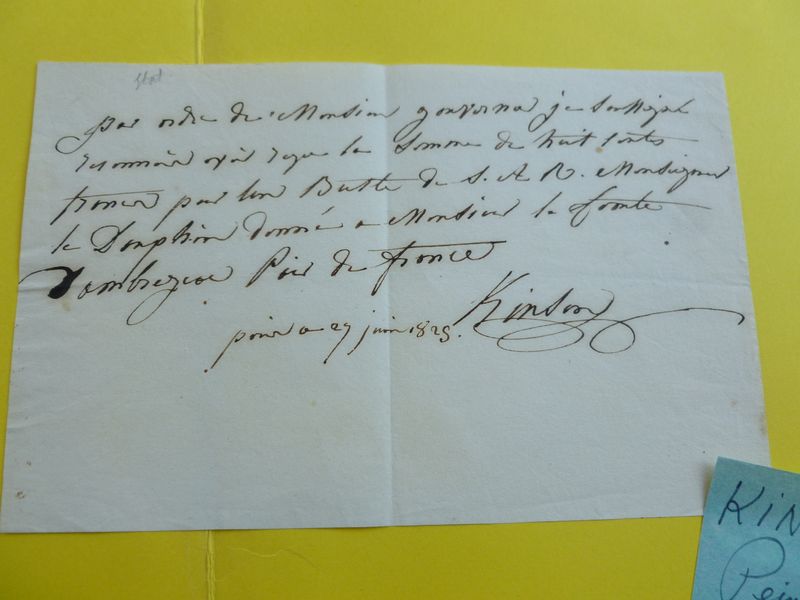 par ordre de Monsieur gouverna je Soussigné
reconnoire avoir reçue la Somme de huit Cents
francs pour un Buste de S. A. R. Monseigneur
le Dauphin donné a Monsieur le Comte
D'ambrugeac Pair de france
Kinson
paris ce 27 juin 1825.
KIN
Pein